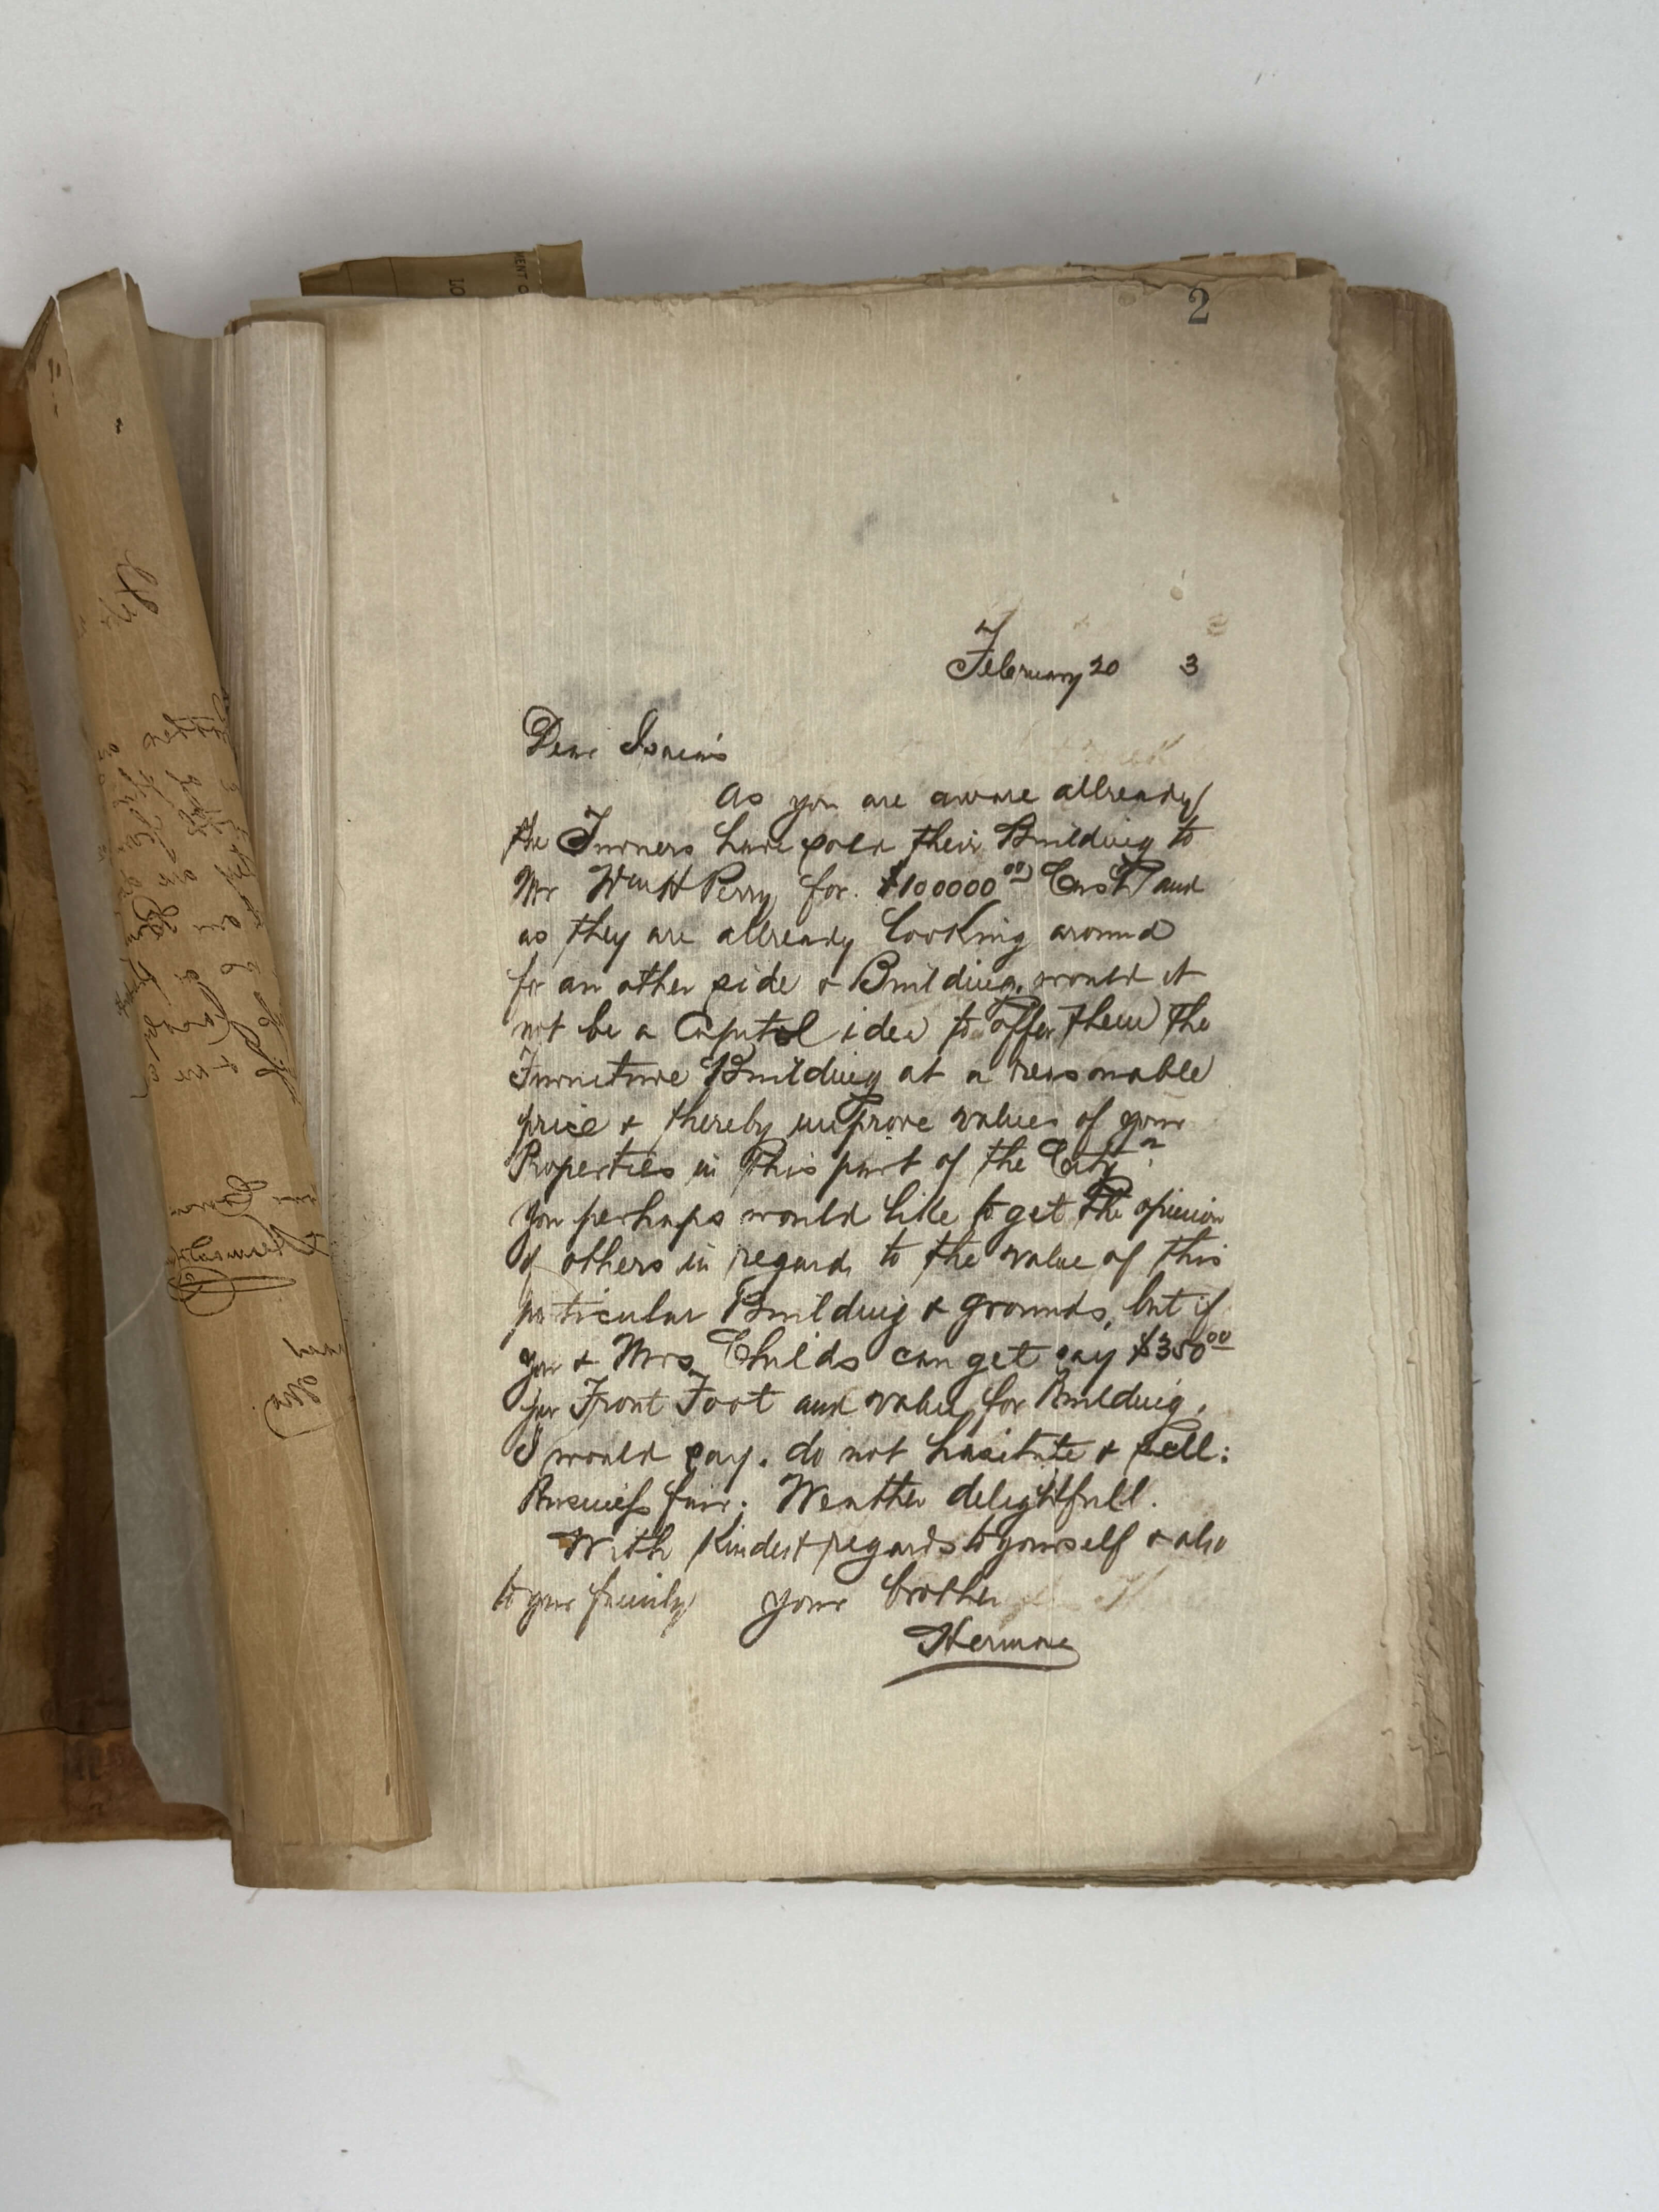 2
February 20 3
Dear Isaias
As you are aware allready
the Turners have sold their Building to
Mr Wm H Perry for $100000 00 Cash and
as they are allready looking around
for an other side & Building, would it
not be a Capitol idea to offer them the
Furniture Building at a reasonable
price & thereby improve values of your
Properties in this part of the City?
You perhaps would like to get the opinion
of others in regard to the value of this
particular Building & grounds, but if
you & Mrs Childs can get say $350 00
per Front Foot and value for Building,
I would say. do not hasitate & sell:
Business fair; Weather delightfull.
With Kindest regards to yourself & also
to your family your brother
Herman